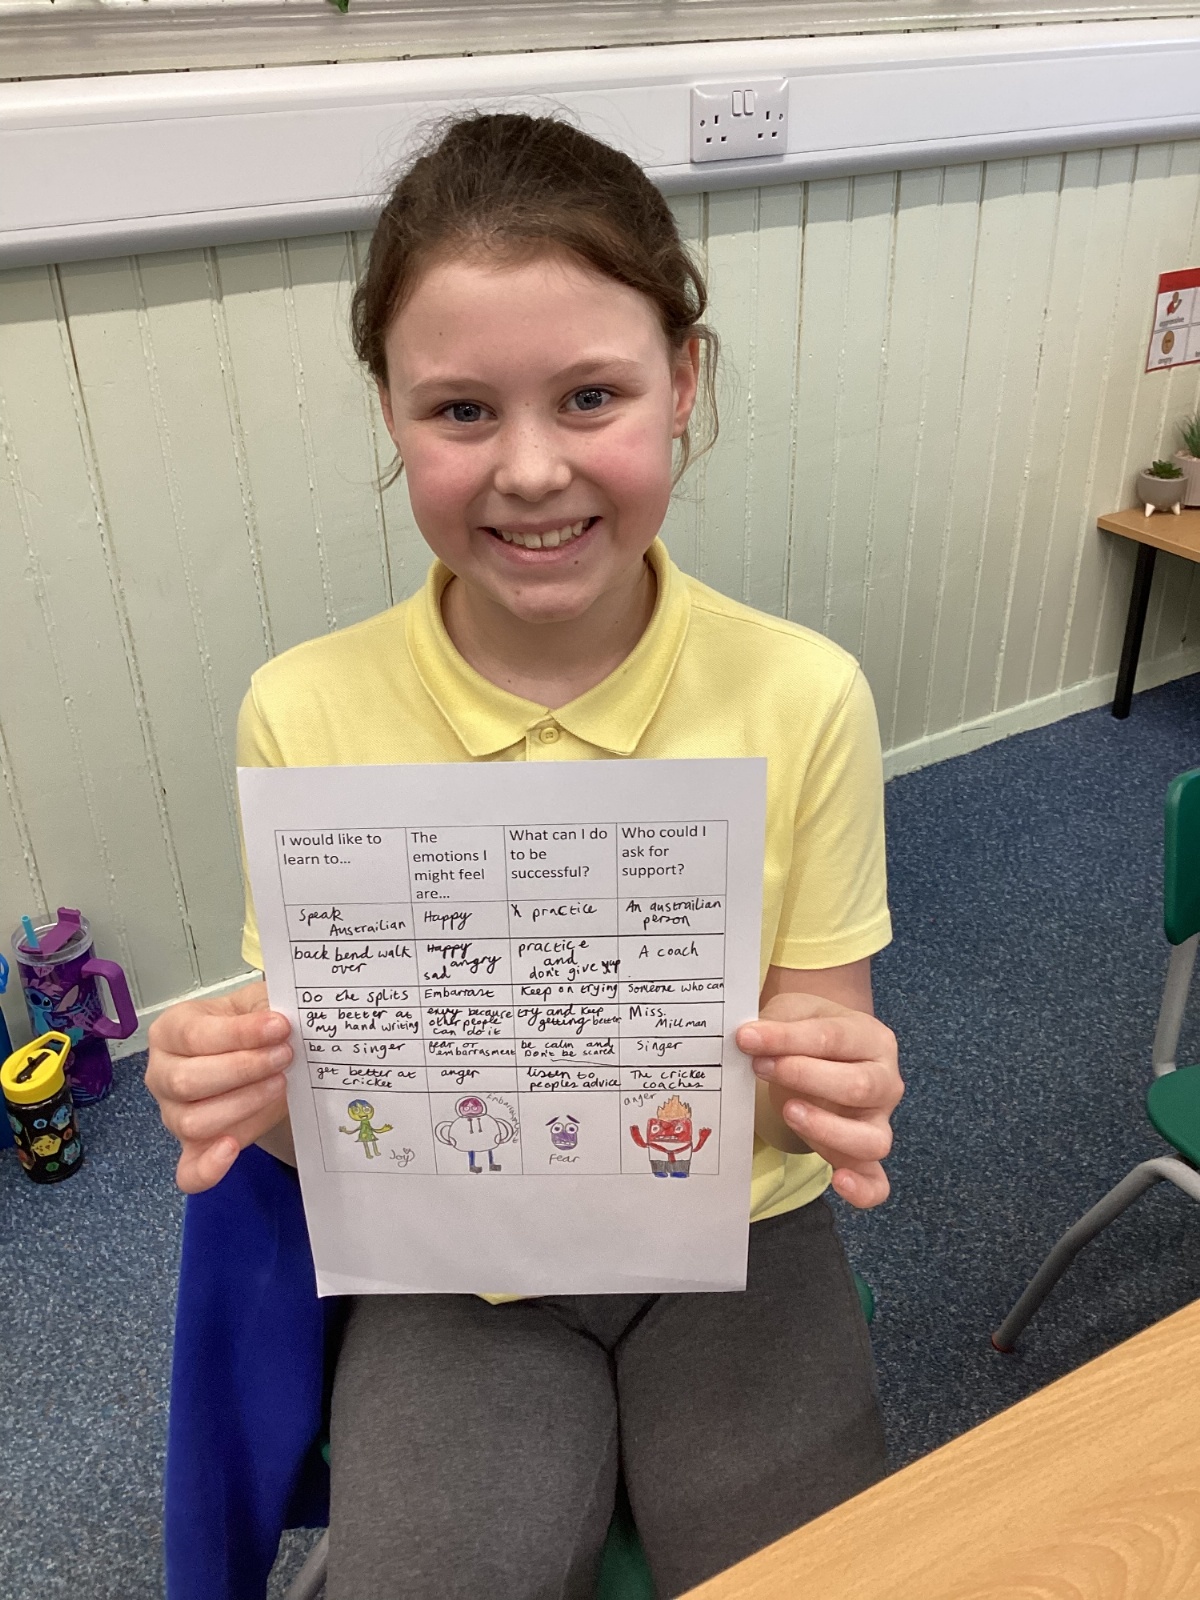 I would like to
learn to...
The
emotions I
might feel
are...
What can I do
to be
successful?
Who could I
ask for
support?
Speak
Austrailian
Happy
practice
An austrailian
person
back bend walk
over
Happy
angry
sad
practice
and
don't give up
A coach
Do the splits
Embarrast
Keep on trying
Someone who can
get better at
my hand writing
envy because
other people
can do it
try and keep
getting better
Miss.
Millman
be a singer
fear or
embarrasment
be calm and
Don't be scared
Singer
get better at
cricket
anger
listen to
peoples advice
The cricket
coaches
Joy
fear
anger